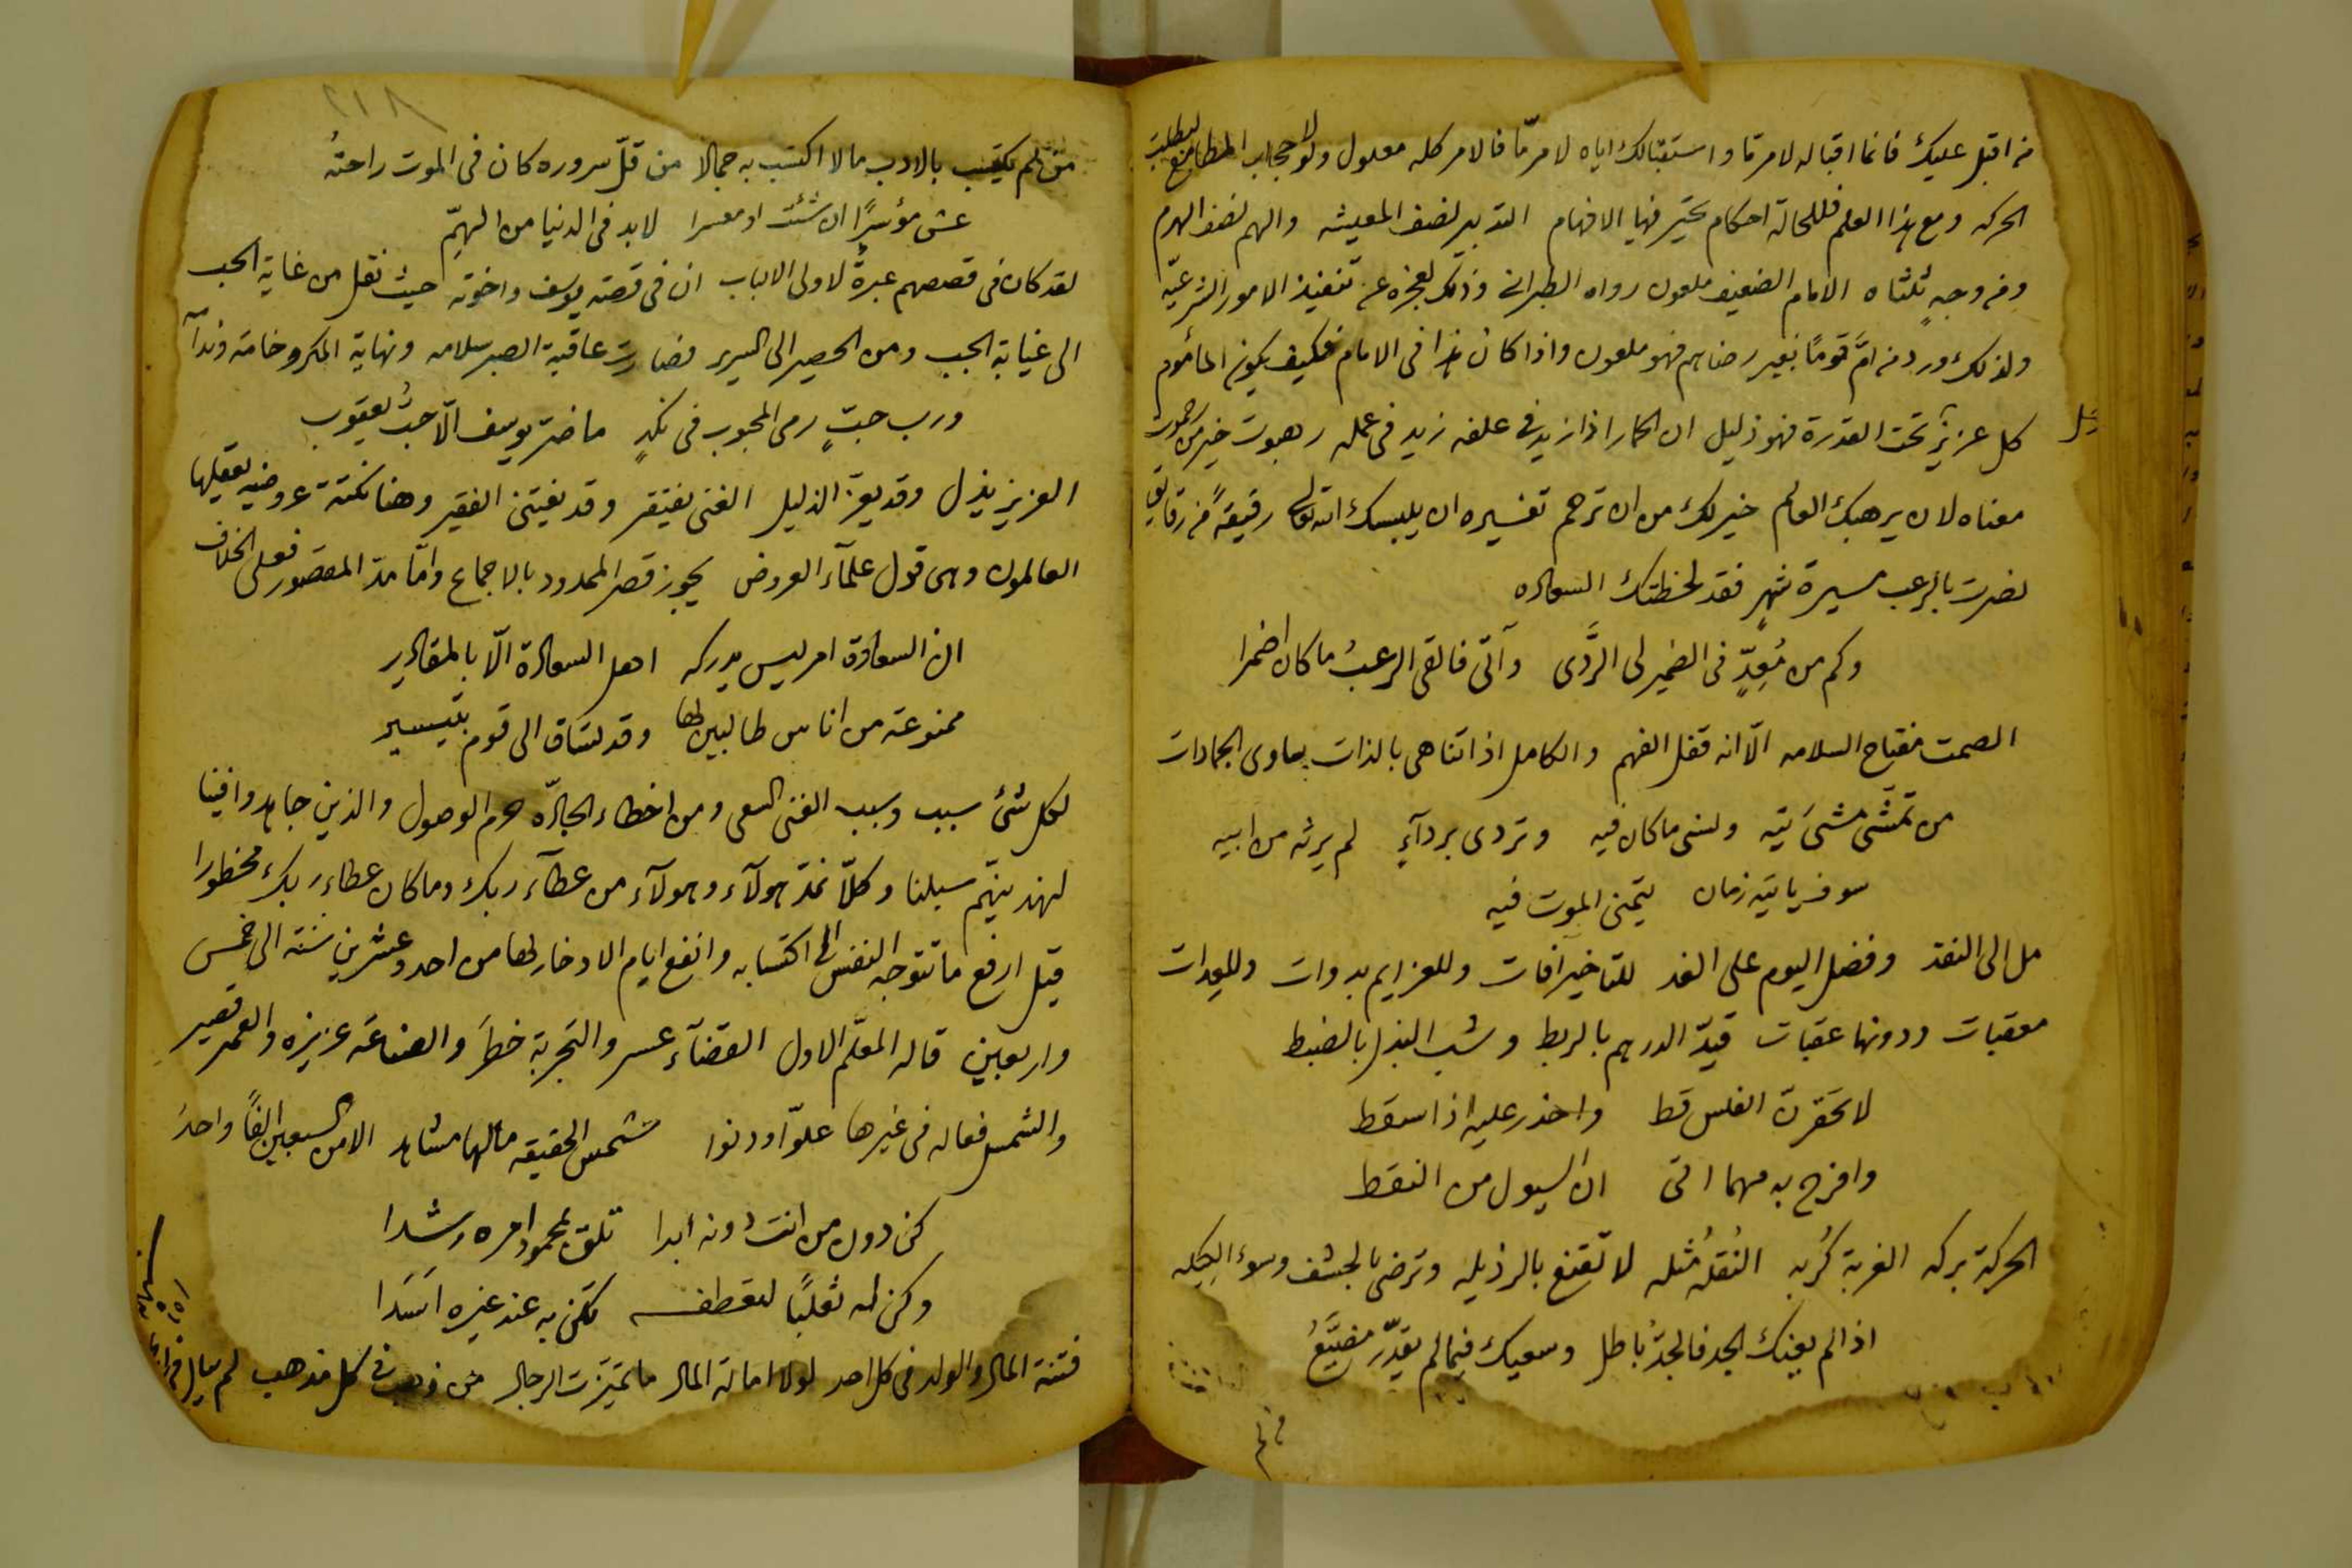 من اقبل عليك فانما اقباله لامر ما واستقبالك اياه لامر مّا فالامر كله معلول ولولا حجاب المطامع لبطلت
الحركه ومع هذا العلم فللحالة احكام تحير فيها الافهام التدبير نصف المعيشه والهم نصف الهرم
ومن وجهٍ ثلثاه الامام الضعيف ملعون رواه الطبراني وذلك لعجزه عن تنفيذ الامور الشرعيّه
ولذلك ورد من امَّ قومًا بغير رضاهم فهو ملعون واذا كان هذا فى الامام فكيف يكون المأموم
كل عزيزٍ تحت القدرة فهو ذليل ان الحمار اذا زيد في علفه زيد فى عمله رهبوت خير من رحموت
معناه لان يرهبك العالم خير لك من ان ترحم تفسيره ان يلبسك الله تعالى رقيقةً من رقايق
نصرت بالرعب مسيرة شهرٍ فقد لحظتك السعاده
وكم من مُعِدٍّ فى الضمير لى الرَّدى وآتى فالقى الرعبُ ما كان اضمرا
الصمت مفتاح السلامه الّا انه قفل الفهم والكامل اذا تناهى بالذات يساوى الجمادات
من تمشّى مشىَ تيه ونسى ما كان فيه وتردى بردآءٍ لم يرثه من ابيه
سوف ياتيه زمان يتمنى الموت فيه
مل الى النقد وفضل اليوم على الغد للتاخير آفات وللعزايم بدوات وللعدات
معقبات ودونها عقبات قيّد الدرهم بالربط وشب البذل بالضبط
لا تحقرنّ الفلس قط واحذر عليه اذا سقط
وافرح به مهما اتى ان السيول من النقط
الحركة بركه الغربة كُربه النُقلهُ مُثله لا تقنع بالرذيله وترضى بالحشف وسوء الكيله
اذا لم يعنك الجد فالجدُّ باطل وسعيك فيما لم يقدّر مضيَّعُ
٢١٨
من لم يكتسب بالادب مالا اكتسب به جمالا من قلّ سروره كان فى الموت راحتهُ
عش مؤسرًا ان شئت او معسرا لا بد فى الدنيا من الهمّ
لقد كان فى قصصهم عبرةٌ لاولى الالباب ان فى قصته يوسف واخوته حيث نقل من غاية الحب
الى غيابة الجب ومن الحصير الى السرير فصارت عاقبة الصبر سلامه ونهاية المكر وخامة وندآمه
ورب حبٍّ رمى المحبوب فى نكدٍ ما ضر يوسف الّا حبُّ يعقوب
العزيز يذل وقد يعزّ الذليل الغنى يفتقر وقد يغتنى الفقير وهنا نكتة عروضيه يعقلها
العالمون وهى قول علمآء العروض يجوز قصر الممدود بالاجماع وامّا مدّ المقصور فعلى الخلاف
ان السعادة امر ليس يدركه اهل السعادة الّا بالمقادير
ممنوعة من اناس طالبين لها وقد تساق الى قوم بتيسير
لكل شئ سبب وسبب الغنى السعى ومن اخطاء الجادّه حرم الوصول والذين جاهدوا فينا
لنهدينهم سبلنا وكلًّا نمدّ هولآء وهولآء من عطآء ربك وما كان عطاء ربك محظورا
قيل ارفع ما تتوجه النفس الى اكتسابه وانفع ايام الادخار لها من احد وعشرين سنة الى خمس
واربعين قاله المعلّم الاول القضآء عسر والتجربة خطر والصناعة عزيزه والعمر قصير
والشمس فعاله فى غيرها علوّا ودنوا شمس الحقيقه مالها مشاهد الا من السبعين الفًا واحدَ
كن دون من انت دونه ابدا تلق لمحمود امره رشدا
وكن له ثعلبًا لتعطفه تكن به عند غيره اسَدا
فتنة المال والولد فى كل احد لولا امالة المال ما تميّزت الرجال من ذهب فى كل مذهب لم يبال